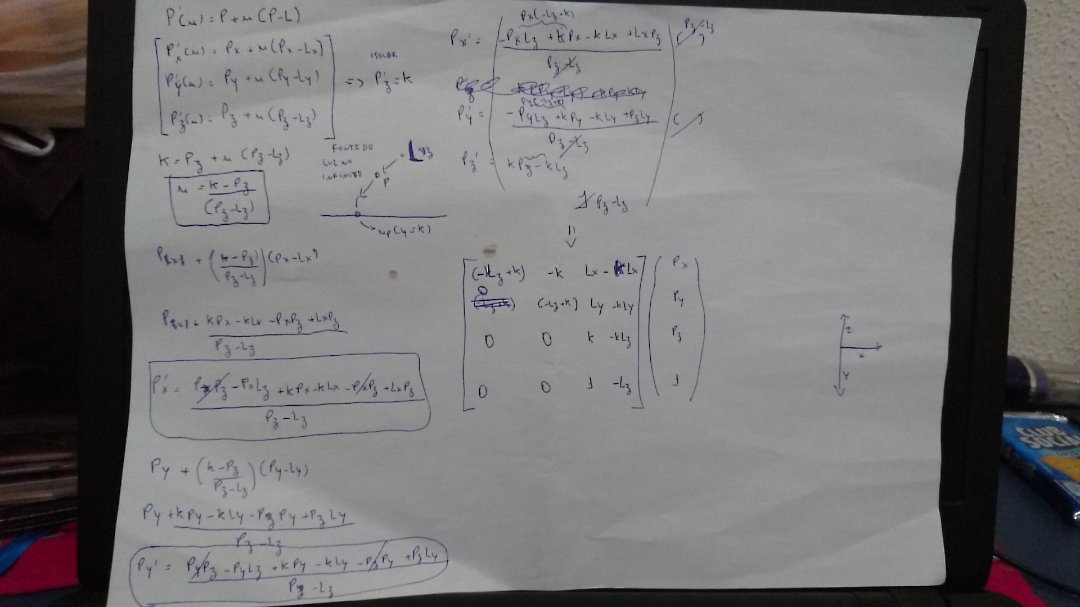 P'(u) = P + u(P-L)
P'x(u) = Px + u(Px-Lx)
P'y(u) = Py + u(Py-Ly)
P'z(u) = Pz + u(Pz-Lz)
=> P'z = k
ISOLAR
k = Pz + u(Pz-Lz)
u = k - Pz
(Pz-Lz)
FONTE DE
LUZ NO
INFINITO
P
+ (k-Pz / Pz-Lz)(Px-Lx)
+ kPx - kLx - PxPz + LxPz
Pz-Lz
P'x = PxPz - PxLz + kPx - kLx - PxPz + LxPz
Pz-Lz
Py + (k-Pz / Pz-Lz)(Py-Ly)
Py + kPy - kLy - PzPy + PzLy
Pz-Lz
Py' = PyPz - PyLz + kPy - kLy - PzPy + PzLy
Pz-Lz
Px(-Lz+k)
Px' = -PxLz + kPx - kLx + LxPz
Pz-Lz
(Pz-Lz)
Py(-Lz+k)
Py' = -PyLz + kPy - kLy + PzLy
Pz-Lz
Pz' = kPz - kLz
1 Pz-Lz
(-Lz+k) -k Lx -kLx Px
0 (-Lz+k) Ly -kLy Py
0 0 k -kLz Pz
0 0 1 -Lz 1
z
x
y
CLUB
SOCIAL